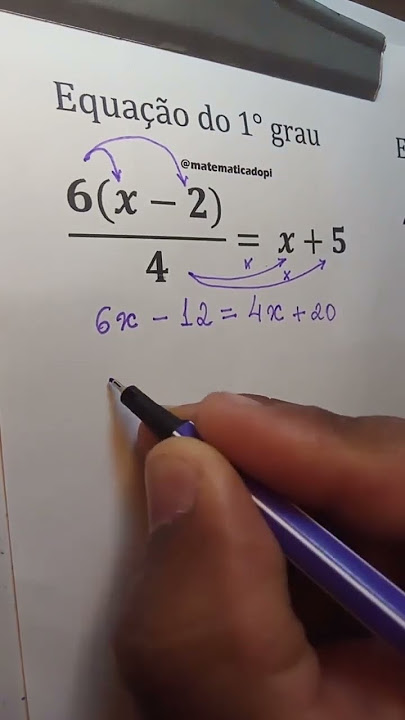 Equação do 1° grau
@matematicadopi
6(x − 2)
4
= x + 5
x x
6x − 12 = 4x + 20
E